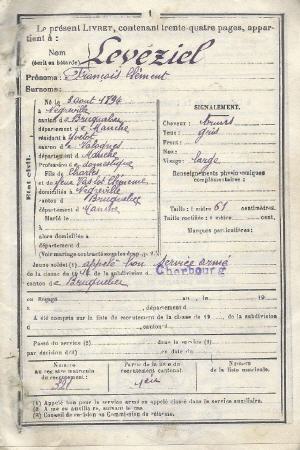 1
Le présent Livret, contenant trente-quatre pages, appar-
tient à :
Nom
(écrit en bâtarde)
Levéziel
Prénoms : François Clément
Surnoms :
État civil.
Né le 3 aout 1894
à Négreville
canton de Bricquebec
département de Manche
résidant à Yvetot
canton de Valognes
département de Manche
Profession de domestique
Fils de Charles
et de feue Vaslot Clémence
domiciliés à Négreville
canton de Bricquebec
département de Manche
Marié le
à
alors domiciliée à
département d
(Voir mariage contracté sous les drapeaux
SIGNALEMENT.
Cheveux : bruns
Yeux : gris
Front :
Nez :
Visage : large
Renseignements physionomiques
complémentaires :
Taille : 1 mètre 61 centimètres.
Taille rectifiée : 1 mètre cent.
Marques particulières :
Jeune soldat (1) appelé bon service armé
de la classe de 19 de la subdivision d Cherbourg
canton de Bricquebec
ou Engagé le 19
à , département d
A été compris sur la liste de recrutement de la classe de 19 de la subdivision
d canton d
Passé du service (2) dans le service (2)
par décision de (3) en date du
Numéro
au registre matricule
du recrutement :
Partie de la liste du
recrutement cantonal
Numéro
de la liste matricule.
(1) Appelé bon pour le service armé ou appelé classé dans le service auxiliaire.
(2) Armé ou auxiliaire, suivant le cas.
(3) Conseil de révision ou Commission de réforme.